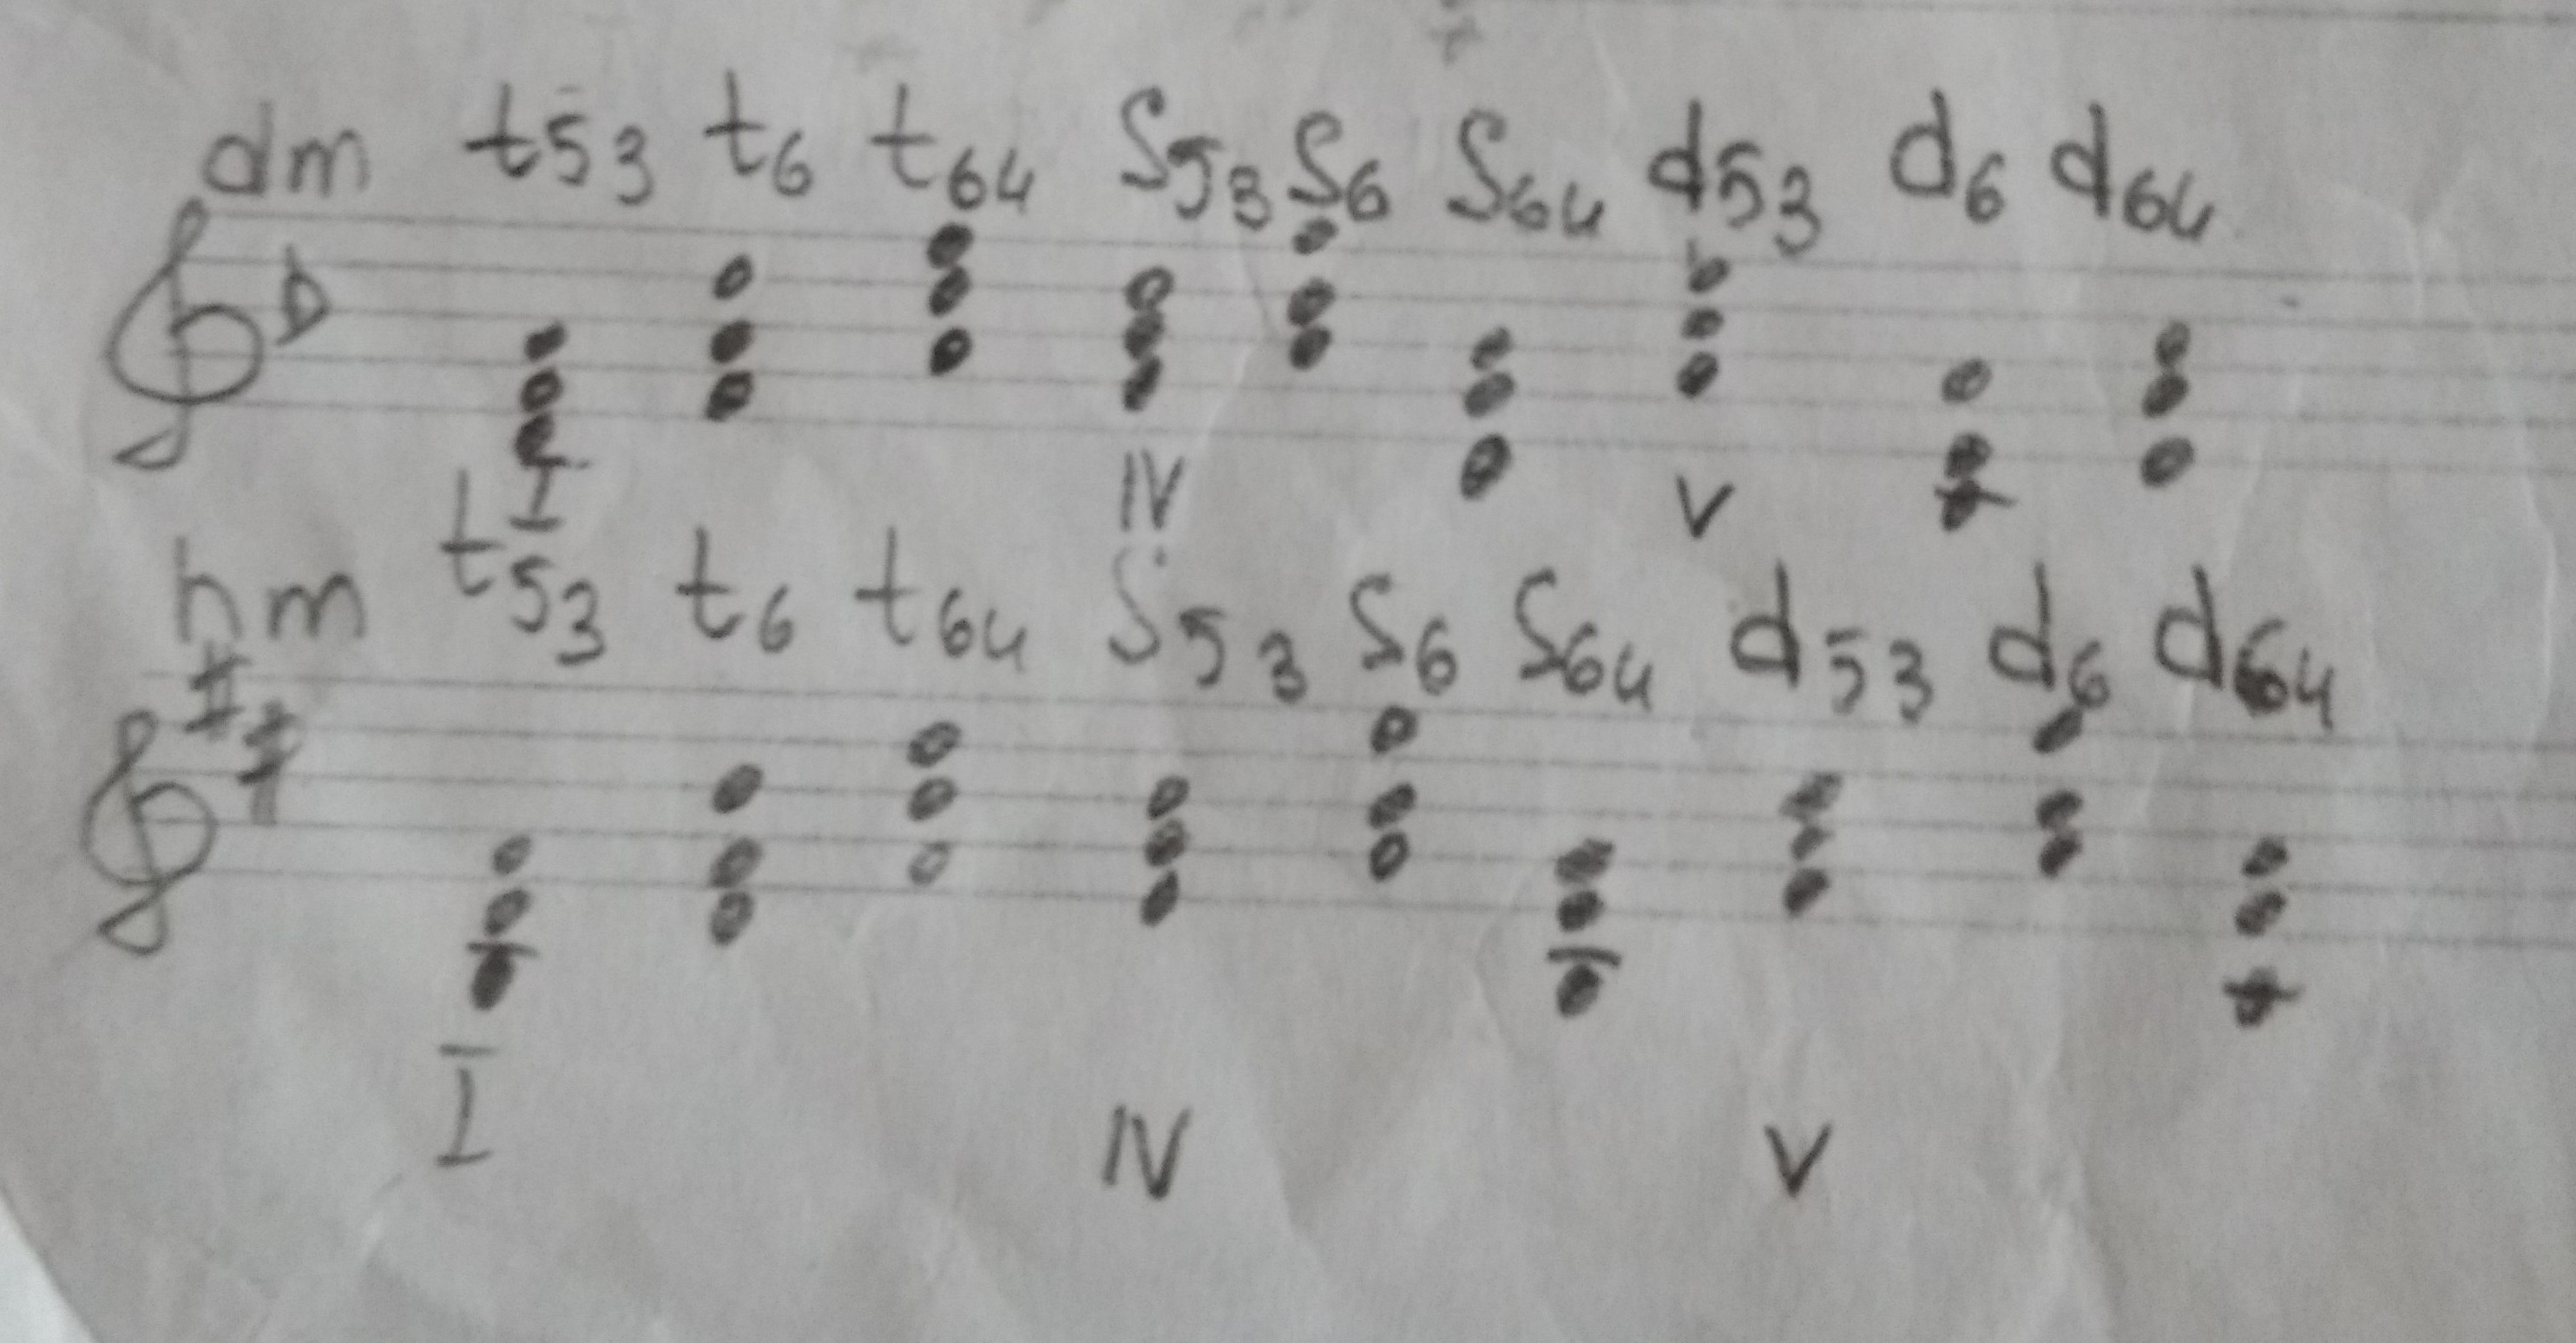 dm t53 t6 t64 S53 S6 S64 d53 d6 d64
I IV V
hm t53 t6 t64 S53 S6 S64 d53 d6 d64
I IV V